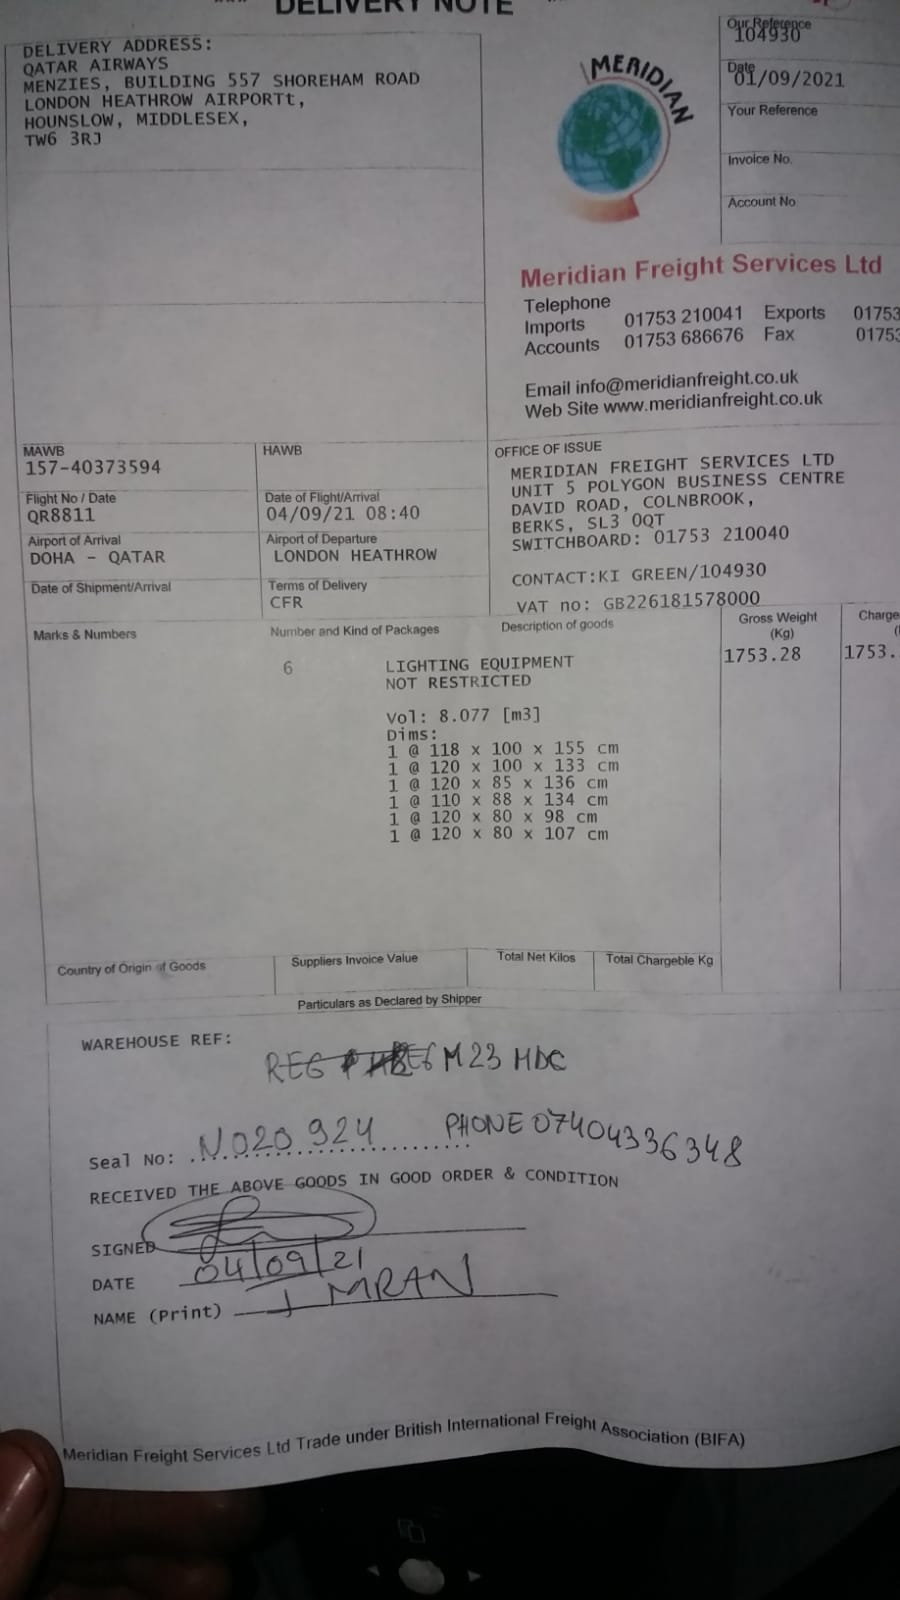 DELIVERY NOTE
DELIVERY ADDRESS:
QATAR AIRWAYS
MENZIES, BUILDING 557 SHOREHAM ROAD
LONDON HEATHROW AIRPORTt,
HOUNSLOW, MIDDLESEX,
TW6 3RJ
MERIDIAN
Our Reference
104930
Date
01/09/2021
Your Reference
Invoice No.
Account No
Meridian Freight Services Ltd
Telephone
Imports 01753 210041 Exports 01753
Accounts 01753 686676 Fax 01753
Email info@meridianfreight.co.uk
Web Site www.meridianfreight.co.uk
MAWB
157-40373594
HAWB
Flight No / Date
QR8811
Date of Flight/Arrival
04/09/21 08:40
Airport of Arrival
DOHA - QATAR
Airport of Departure
LONDON HEATHROW
Date of Shipment/Arrival
Terms of Delivery
CFR
OFFICE OF ISSUE
MERIDIAN FREIGHT SERVICES LTD
UNIT 5 POLYGON BUSINESS CENTRE
DAVID ROAD, COLNBROOK,
BERKS, SL3 0QT
SWITCHBOARD: 01753 210040
CONTACT:KI GREEN/104930
VAT no: GB226181578000
Marks & Numbers
Number and Kind of Packages
Description of goods
Gross Weight
(Kg)
Charge
6
LIGHTING EQUIPMENT
NOT RESTRICTED
1753.28
1753.
Vol: 8.077 [m3]
Dims:
1 @ 118 x 100 x 155 cm
1 @ 120 x 100 x 133 cm
1 @ 120 x 85 x 136 cm
1 @ 110 x 88 x 134 cm
1 @ 120 x 80 x 98 cm
1 @ 120 x 80 x 107 cm
Country of Origin of Goods
Suppliers Invoice Value
Total Net Kilos
Total Chargeble Kg
Particulars as Declared by Shipper
WAREHOUSE REF:
REG M23 HDC
Seal No: N020924 PHONE 07404336348
RECEIVED THE ABOVE GOODS IN GOOD ORDER & CONDITION
SIGNED
DATE 04/09/21
NAME (Print) IMRAN
Meridian Freight Services Ltd Trade under British International Freight Association (BIFA)